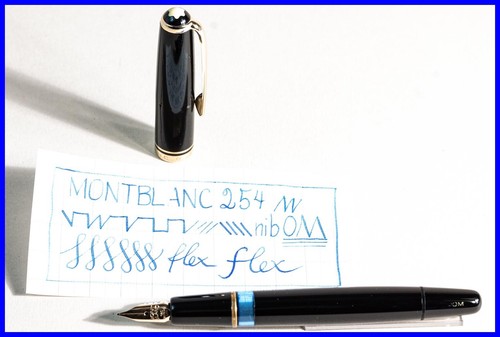 MONTBLANC 254 M
nib OM
flex flex
OM